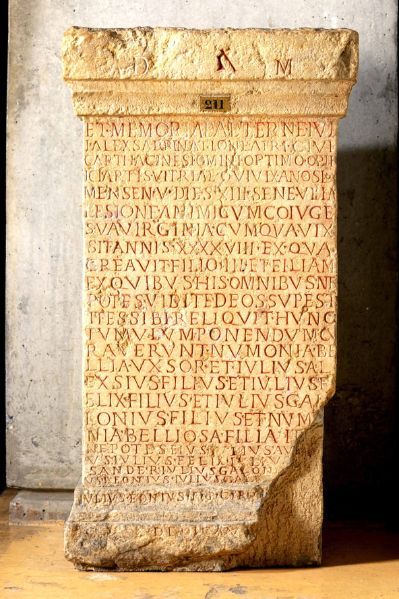 D Λ M
211
ET MEMORIAE AETERNE IVL
I ALEXSADRI NATIONE AFRI CIVI
CARTHACINESI OMINI OPTIMO OPIF
ICI ARTIS VITRIAE QVI VIX ANOS
MENSEN V DIES XIII SENE VLLA
LESIONE ANIMI CVM COIVGE
SVA VIRGINIA CVM QVA VIX
SIT ANNIS XXXXVIII EX QVA
CREAVIT FILIO III ET FILIAM
EX QVIBVS HIS OMNIBVS NE
POTES VIDIT ET EOS SVPEST
ITES SIBI RELIQVIT HVNC
TVMVLVM PONENDVM CV
RAVERVNT NVMONIA BE
LLIA VXSOR ET IVLIVS AL
EXSIVS FILIVS ET IVLIVS F
ELIX FILIVS ET IVLIVS GAL
LONIVS FILIVS ET NVM
NIA BELLIOSA FILIA
NEPOTES EIVS IVLIVS
IVLIVS FELIX
SANDER IVLIVS GALON
LEONIVS IVLIVS
IVLIVS EONIVS